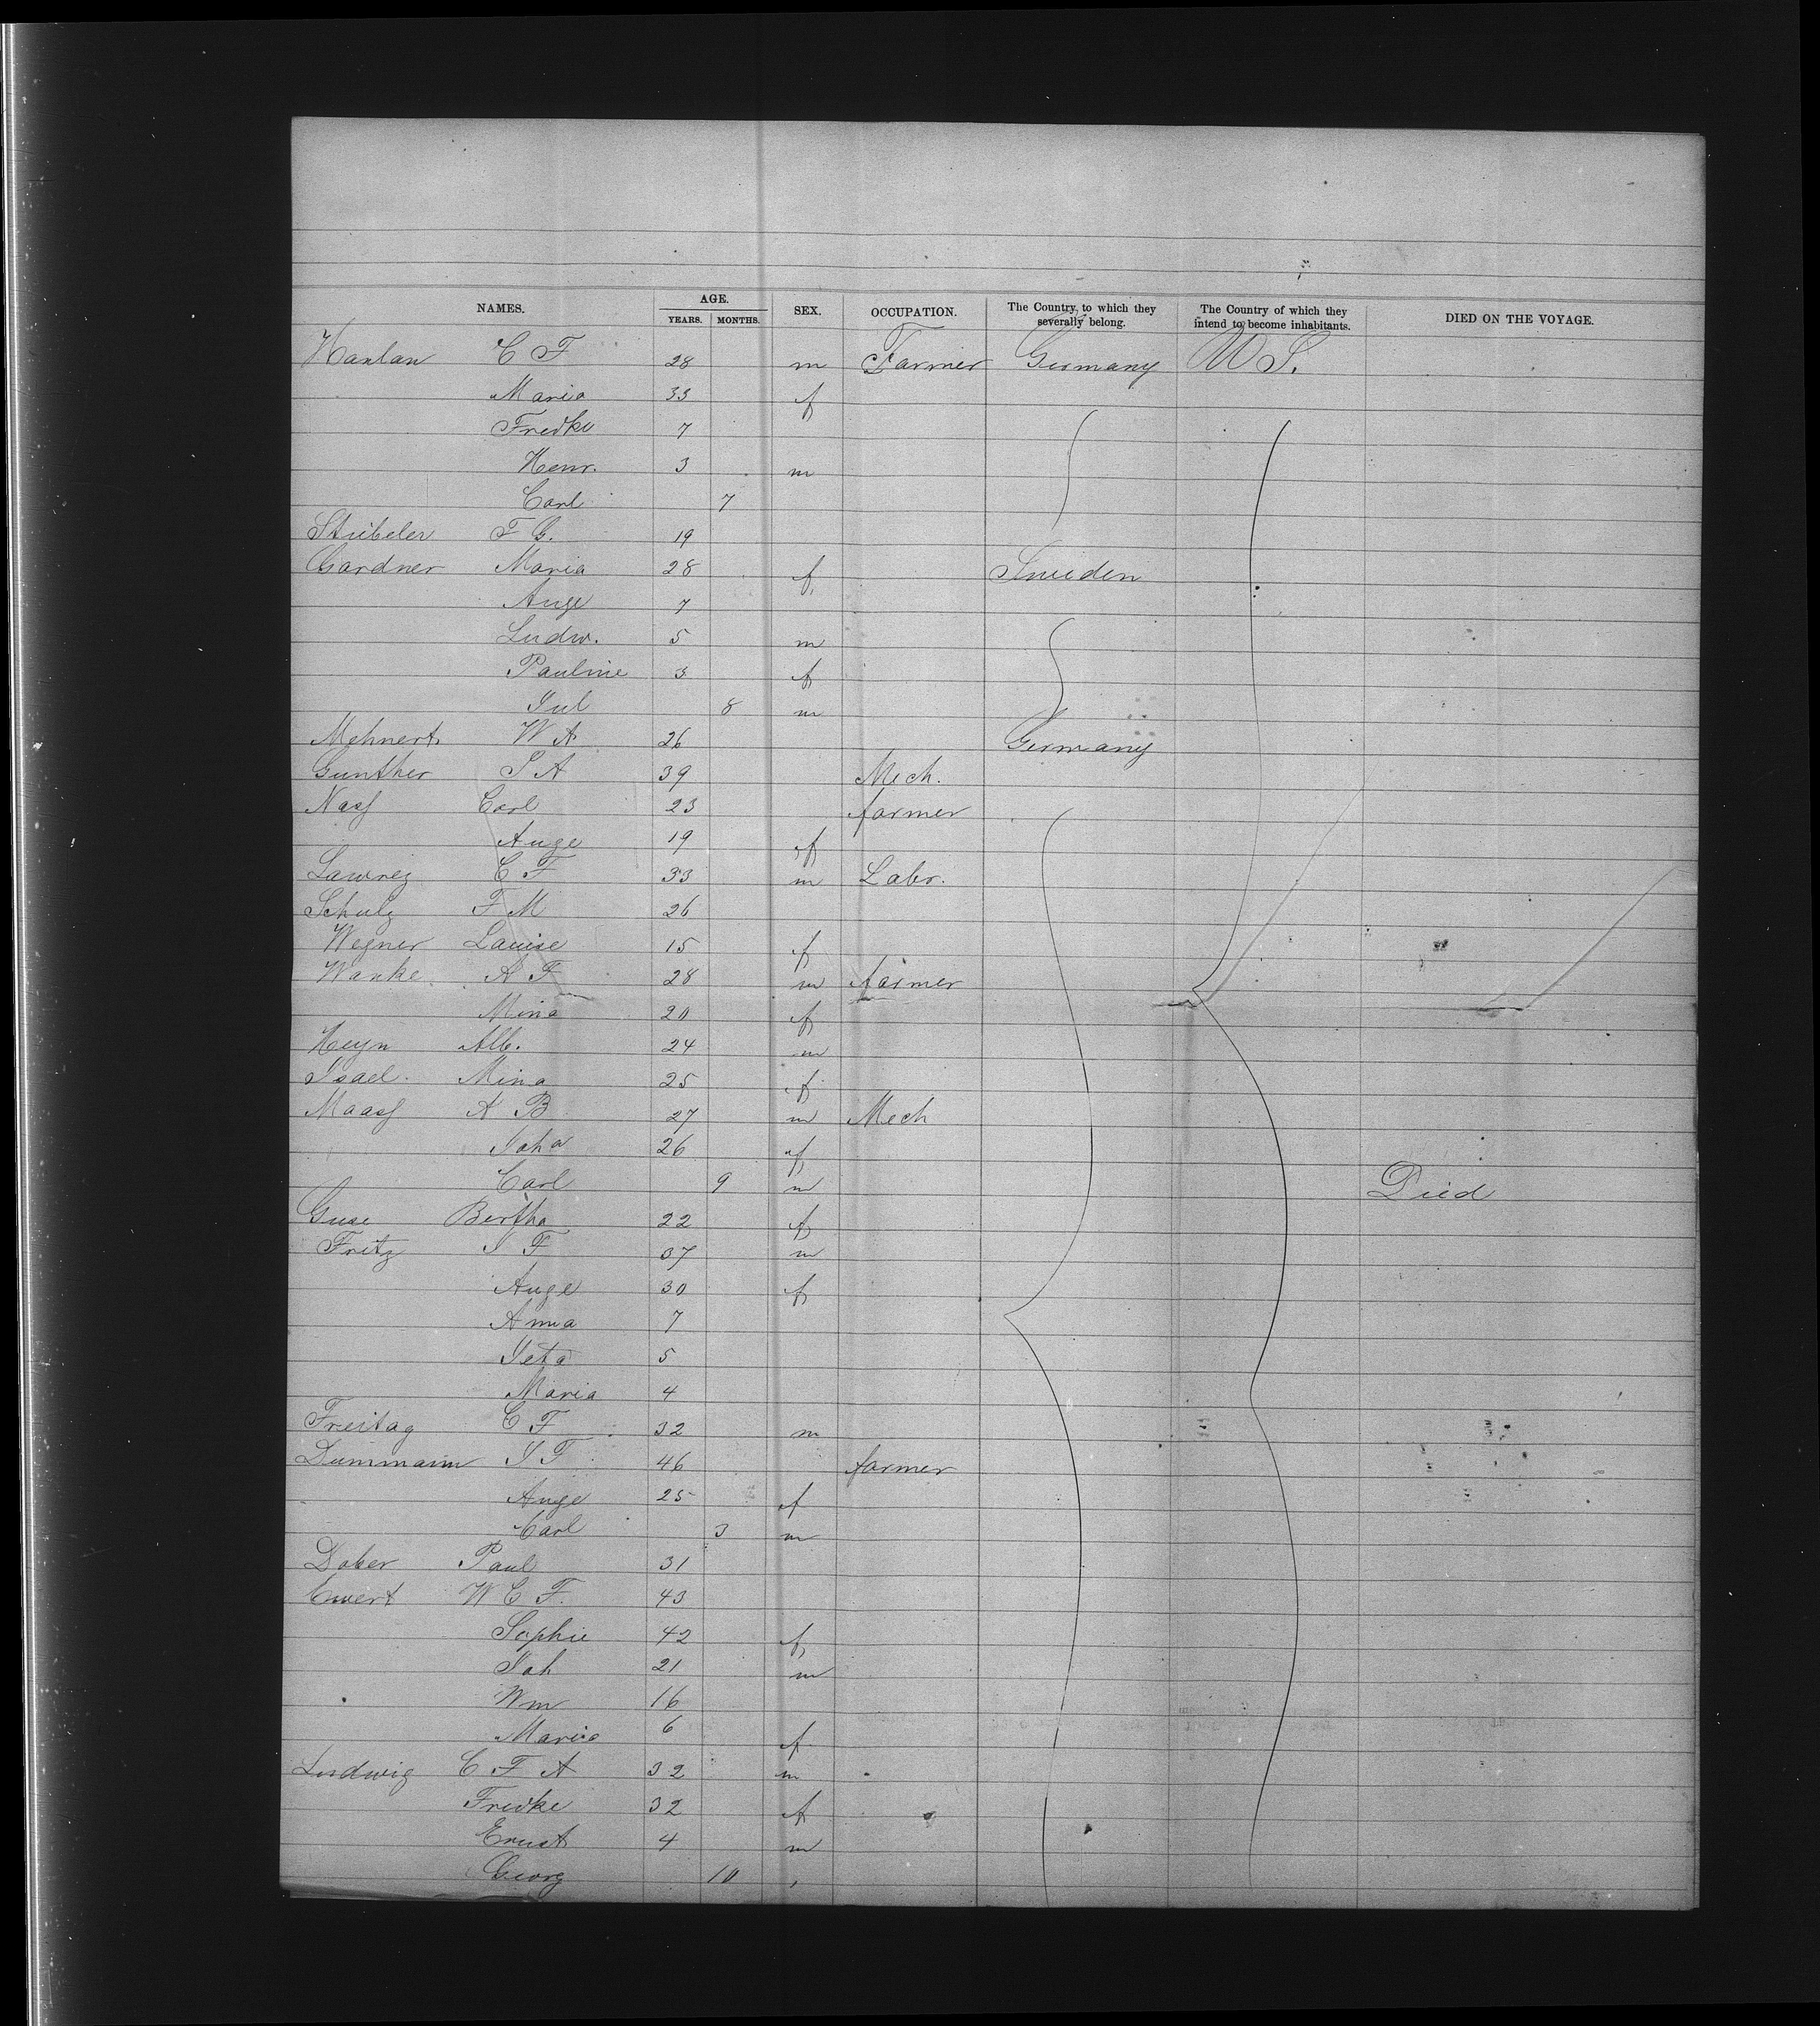 NAMES. AGE. YEARS. MONTHS. SEX. OCCUPATION. The Country, to which they severally belong. The Country of which they intend to become inhabitants. DIED ON THE VOYAGE.
C F 28 m Farmer Germany U S.
Maria 33 f
Fredke 7
Henr. 3 m
Carl 7
Stubeler F G. 19
Gardner Maria 28 f Sweden
Auge 7
Ludw. 5 m
Pauline 3 f
Jul 8 m
Mehnert W A 26 Germany
Gunther J A 39 Mech.
Nass Carl 23 farmer
Auge 19 f
Lawrez C F 33 m Labr.
Schulz F M 26
Wegner Louise 15 f
Wanke A F 28 m farmer
Mina 20 f
Heyn Alb. 24 m
Isael. Mina 25 f
Maass A B 27 m Mech
Joha 26 f
Carl 9 m Died
Guse Bertha 22 f
Fritz J F 37 m
Auge 30 f
Anna 7
Jeta 5
Maria 4
Freitag C F 32 m
Dummann J F 46 farmer
Auge 25 f
Carl 3 m
Dober Paul 31
Ewert W C F. 43
Sophie 42 f
Joh 21 m
Wm 16
Maria 6 f
Ludwig C F A 32 m
Fredke 32 f
Ernst 4 m
Georg 10